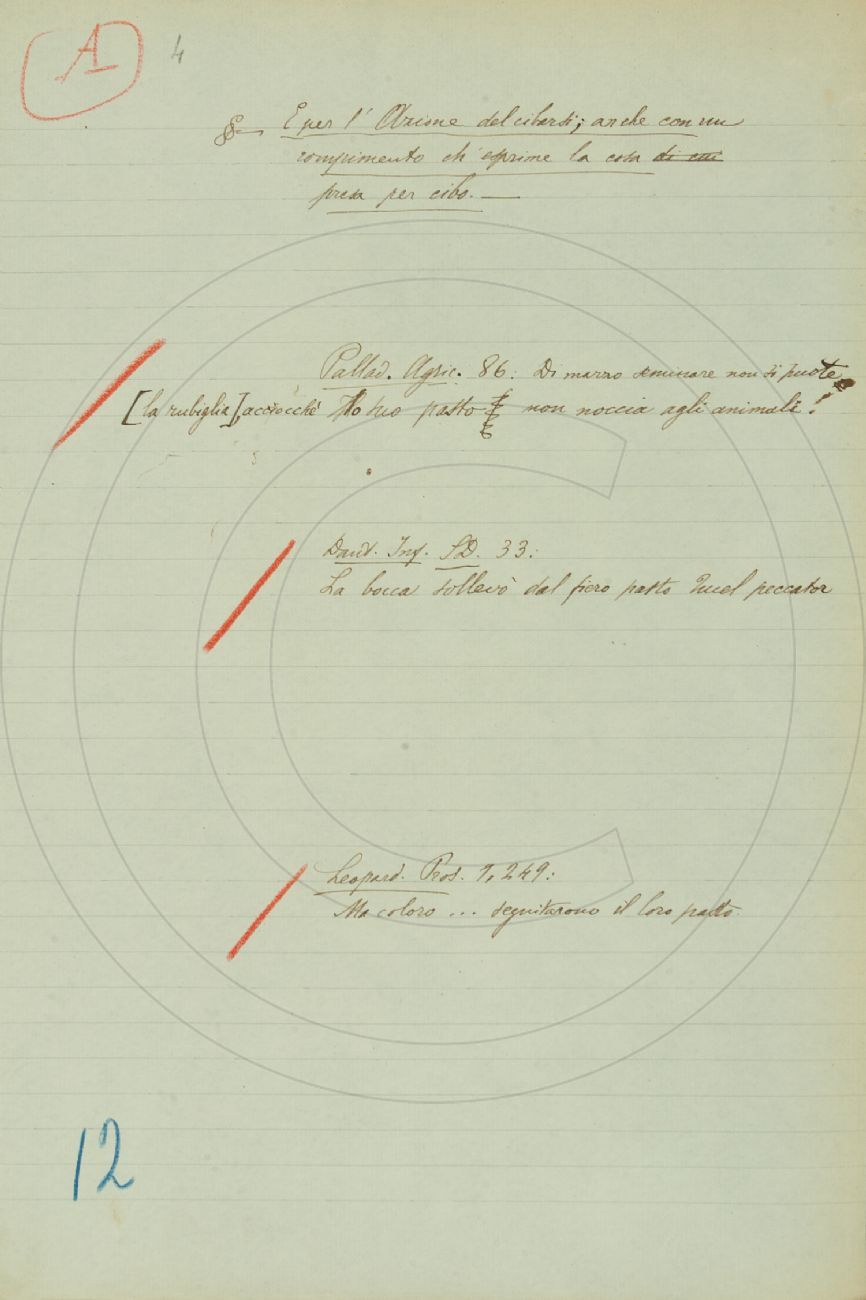 A 4
§ — E per l'Azione del cibarsi; anche con un
compimento ch'esprime la cosa di cui
presa per cibo. —
Pallad. Agric. 86: Di marzo seminare non si puote
[la rubiglia], acciocchè lo tuo pasto non noccia agli animali!
Dant. Inf. SD. 33:
La bocca sollevò dal fiero pasto Quel peccator
Leopard. Pros. 1, 249:
Ma coloro ... seguitarono il loro pasto.
12